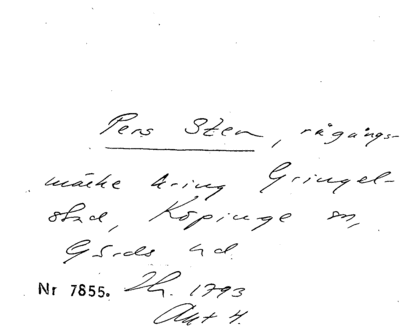 Pers Sten, rågångs-
märke kring Gringel-
stad, Köpinge sn,
Gärds hd.
Nr 7855. Lh. 1793
Akt 4.